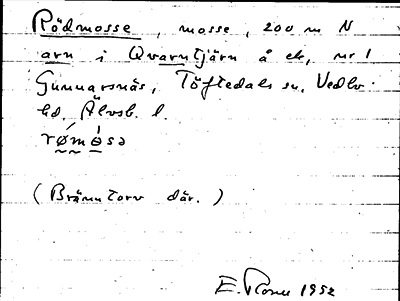 Rödmosse, mosse, 200 m N
arn i Qvarntjärn å ek, nr 1
Gunnarsnäs, Töftedals sn, Vedbo
hd, Älvsb. l.
(Bränntorv där.)
E. 1952